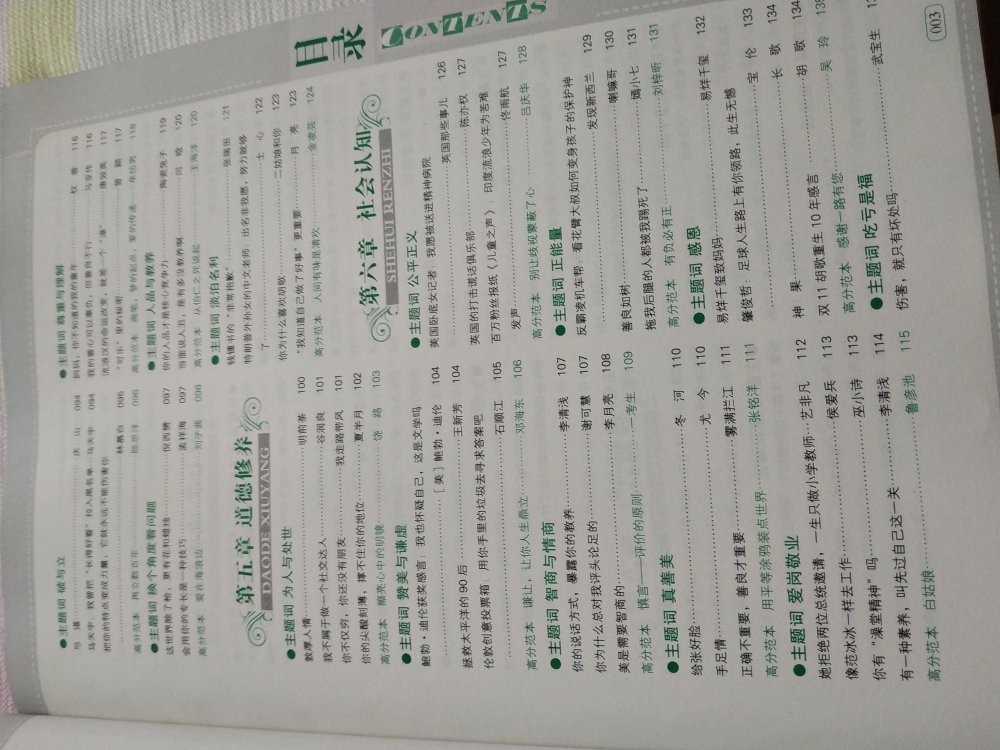 目录
CONTENTS
●主题词 破与立
弓 道……庆 山 094
马天宇：我曾把“长得好看”拉入黑名单 马天宇 094
把你的特点变成力量，它就永远不能伤害你
……林慕白 095
高分范本 再立数百年……096
●主题词 换个角度看问题
这世界除了枪，更有花和蜡烛……倪西赟 097
会用你的专长是一种技巧……孟祥海 097
高分范本 爱在海浪边……098
第五章 道德修养
DAODE XIUYANG
●主题词 为人与处世
敦厚人情……明前茶 100
我不屑于做一个社交达人……谷润良 101
你不仅穷，你还没有朋友……我走路带风 101
你的尖酸刻薄，撑不住你的地位……夏半月 102
高分范本 擦亮心中的明镜……饶 路 103
●主题词 赞美与谦虚
鲍勃·迪伦获奖感言：我也怀疑自己，这是文学吗
……［美］鲍勃·迪伦 104
拯救太平洋的90后……王新芳 104
伦敦创意投票箱：用你手里的垃圾去寻求答案吧
……石顺江 105
高分范本 谦让，让你人生鼎立……邓海东 106
●主题词 智商与情商
你的说话方式，暴露你的教养……李清浅 107
你为什么总对我评头论足的……谢可慧 107
美是需要智商的……李月亮 108
高分范本 慎言——评价的原则……一考生 109
●主题词 真善美
给张好脸……冬 河 110
手足情……尤 今 110
正确不重要，善良才重要……雾满拦江 111
高分范本 用平等涂鸦装点世界……张铭洋 111
●主题词 爱岗敬业
她拒绝两位总统邀请，一生只做小学教师…艺非凡 112
像范冰冰一样去工作……侯爱兵 113
你有“澡堂精神”吗……巫小诗 113
有一种素养，叫先过自己这一关……李清浅 114
高分范本 白姑娘……鲁彦池 115
●主题词 尊重与理解
妈妈，你不知道的我的童年……116
我的善心可以辜负，但善良不行……马亚伟 116
流浪汉的命运改变，就差一个“澡”……117
“可乐”里的秘密……曾 颖 117
高分范本 画笔，梦的起点，爱的传递……118
●主题词 人品与教养
你的人品才是核心竞争力……陶瓷兔子 119
当面说人丑，是有多没教养啊……闫 晗 120
高分范本 从伯仁之死说起……王海洋 120
●主题词 淡泊名利
钱锺书的“非常抱歉”……张瑞田 121
特朗普外孙女的中文老师：出名非我愿，努力就够
了……士 心 122
你为什么喜欢胡歌……二姑娘和你 123
“我知道自己做了好事”更重要……月 亮 123
高分范本 人间有味是清欢……金凌芸 124
第六章 社会认知
SHEHUI RENZHI
●主题词 公平正义
美国卧底女记者：我愿被送进精神病院
……英国那些事儿 126
英国的打击谎话俱乐部……陈亦权 127
百万粉丝报纸《儿童之声》：印度流浪少年为苦难
发声……佟雨航 127
高分范本 别让歧视蒙蔽了心……吕庆华 128
●主题词 正能量
反霸凌机车帮：看花臂大叔如何变身孩子的保护神
……发现新西兰 129
善良如树……喇嘛哥 130
拖我后腿的人都被我踢死了……嫣小七 131
高分范本 有负必有正……刘梓昕 131
●主题词 感恩
易烊千玺致妈妈……易烊千玺 132
肇俊哲：足球人生路上有你领路，此生无憾
……宝 伦 133
神 果……长 歌 134
双11胡歌重生10年感言……胡 歌 134
高分范本 感谢一路有您……吴 玲 135
●主题词 吃亏是福
伤害，就只有坏处吗……武宝生
003